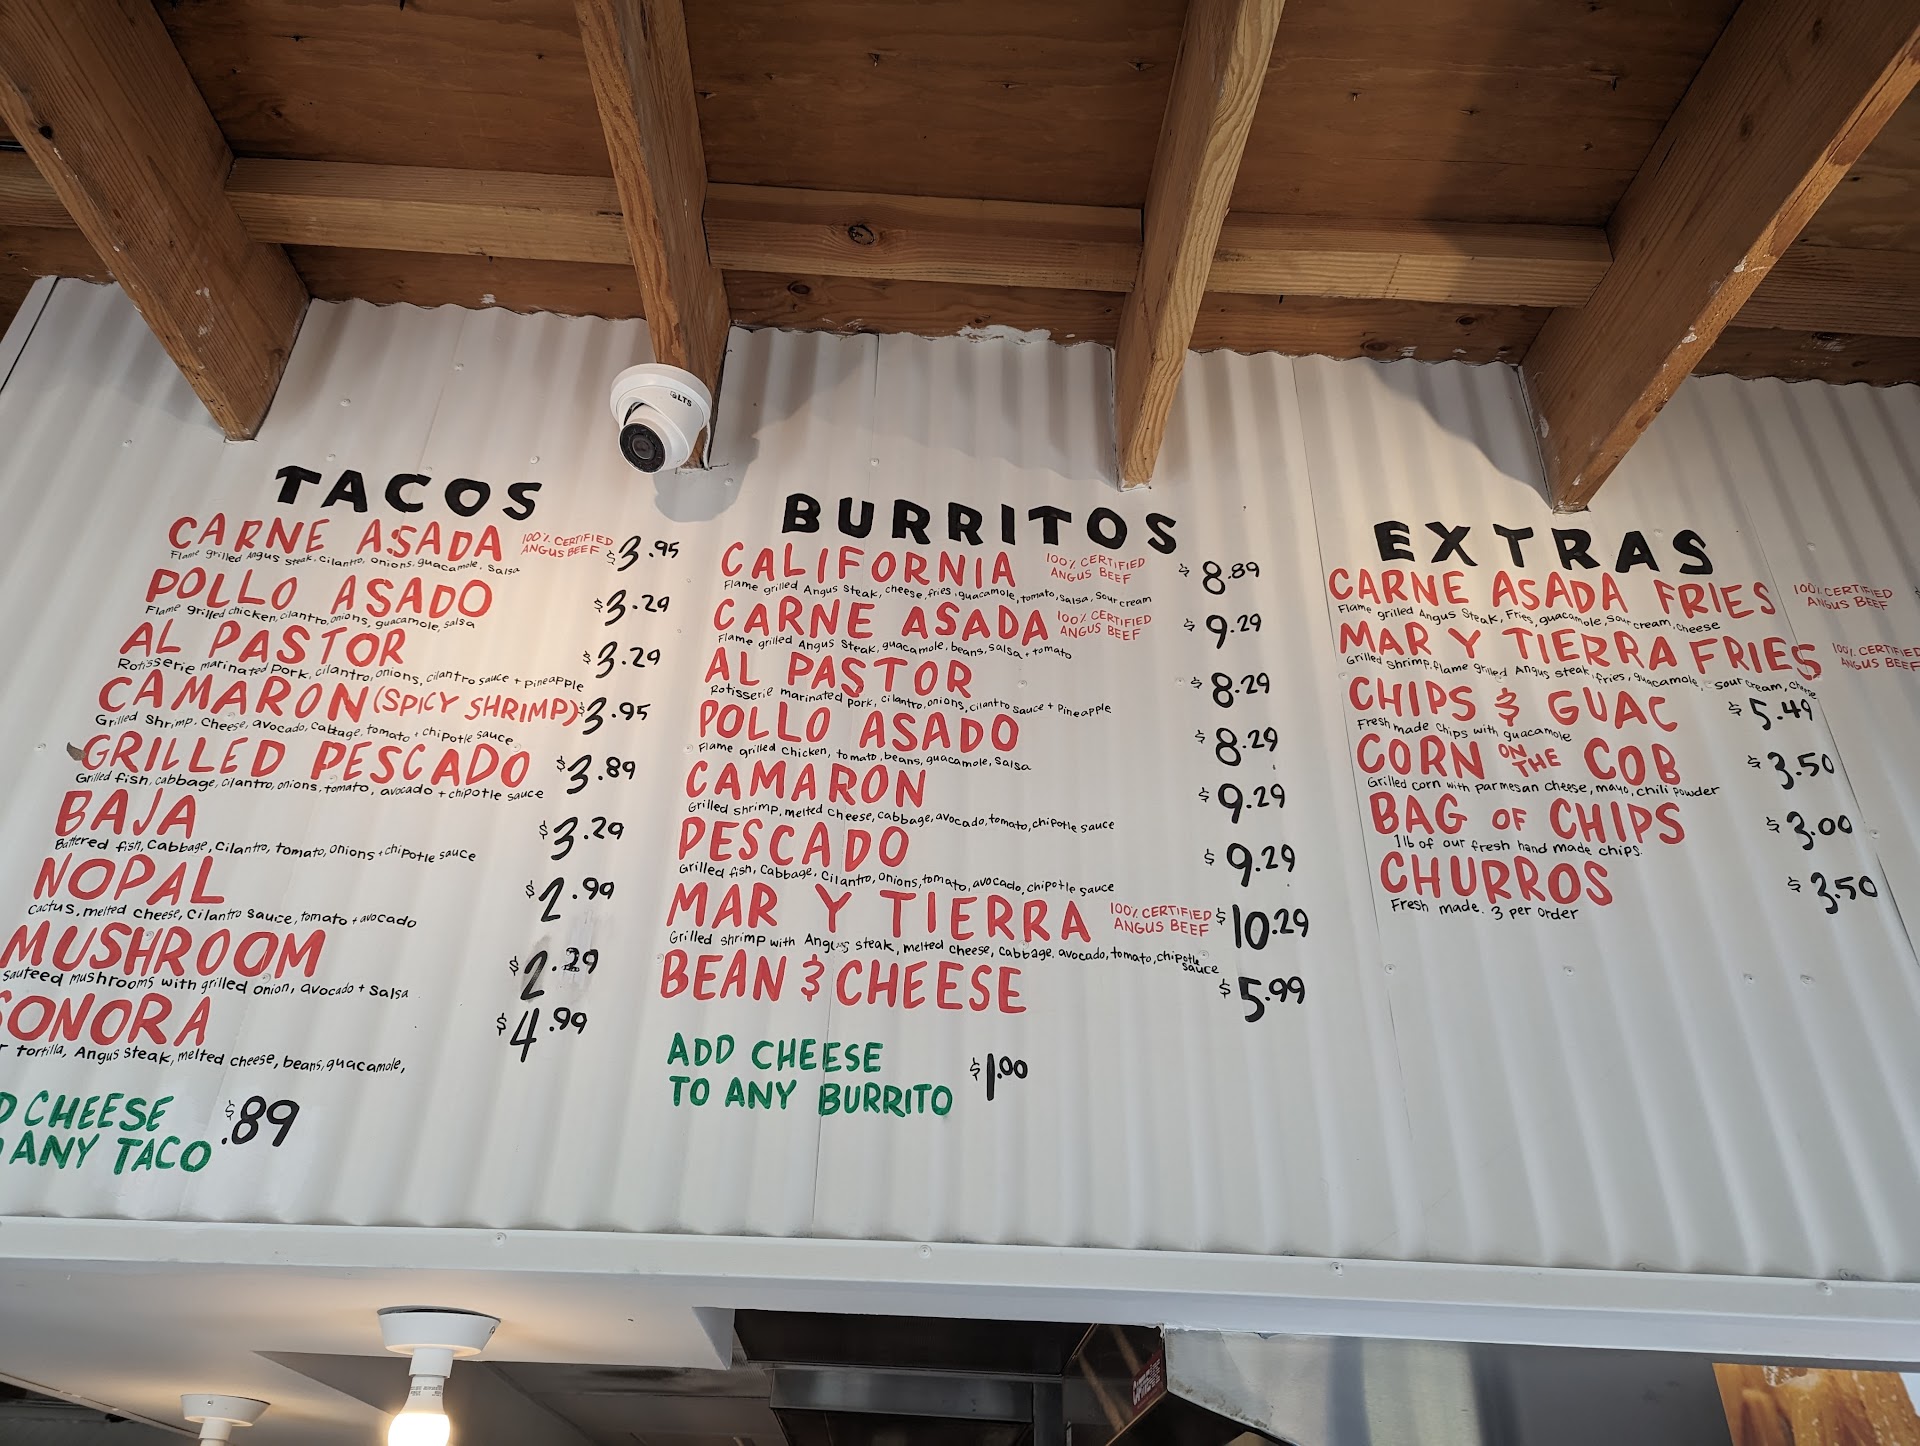 LTS
TACOS
CARNE ASADA 100% CERTIFIED ANGUS BEEF $3.95
Flame grilled Angus Steak, cilantro, onions, guacamole, salsa
POLLO ASADO $3.29
Flame grilled chicken, cilantro, onions, guacamole, salsa
AL PASTOR $3.29
Rotisserie marinated pork, cilantro, onions, cilantro sauce + pineapple
CAMARON (SPICY SHRIMP) $3.95
Grilled shrimp, cheese, avocado, cabbage, tomato + chipotle sauce
GRILLED PESCADO $3.89
Grilled fish, cabbage, cilantro, onions, tomato, avocado + chipotle sauce
BAJA $3.29
Battered fish, Cabbage, Cilantro, tomato, onions + chipotle sauce
NOPAL $2.99
Cactus, melted cheese, cilantro sauce, tomato + avocado
MUSHROOM $2.29
sauteed mushrooms with grilled onion, avocado + salsa
SONORA $4.99
tortilla, Angus steak, melted cheese, beans, guacamole,
D CHEESE
ANY TACO $.89
BURRITOS
CALIFORNIA 100% CERTIFIED ANGUS BEEF $8.89
Flame grilled Angus Steak, cheese, fries, guacamole, tomato, salsa, sour cream
CARNE ASADA 100% CERTIFIED ANGUS BEEF $9.29
Flame grilled Angus Steak, guacamole, beans, salsa + tomato
AL PASTOR $8.29
Rotisserie marinated pork, cilantro, onions, cilantro sauce + pineapple
POLLO ASADO $8.29
Flame grilled chicken, tomato, beans, guacamole, salsa
CAMARON $9.29
Grilled shrimp, melted cheese, cabbage, avocado, tomato, chipotle sauce
PESCADO $9.29
Grilled fish, cabbage, cilantro, onions, tomato, avocado, chipotle sauce
MAR Y TIERRA 100% CERTIFIED ANGUS BEEF $10.29
Grilled shrimp with Angus steak, melted cheese, cabbage, avocado, tomato, chipotle sauce
BEAN & CHEESE $5.99
ADD CHEESE
TO ANY BURRITO $1.00
EXTRAS
CARNE ASADA FRIES 100% CERTIFIED ANGUS BEEF
Flame grilled Angus Steak, Fries, guacamole, sour cream, cheese
MAR Y TIERRA FRIES 100% CERTIFIED ANGUS BEEF
Grilled shrimp, flame grilled Angus steak, fries, guacamole, sour cream, cheese
CHIPS & GUAC $5.49
Fresh made chips with guacamole
CORN ON THE COB $3.50
Grilled corn with parmesan cheese, mayo, chili powder
BAG OF CHIPS $3.00
1lb of our fresh hand made chips.
CHURROS $3.50
Fresh made. 3 per order